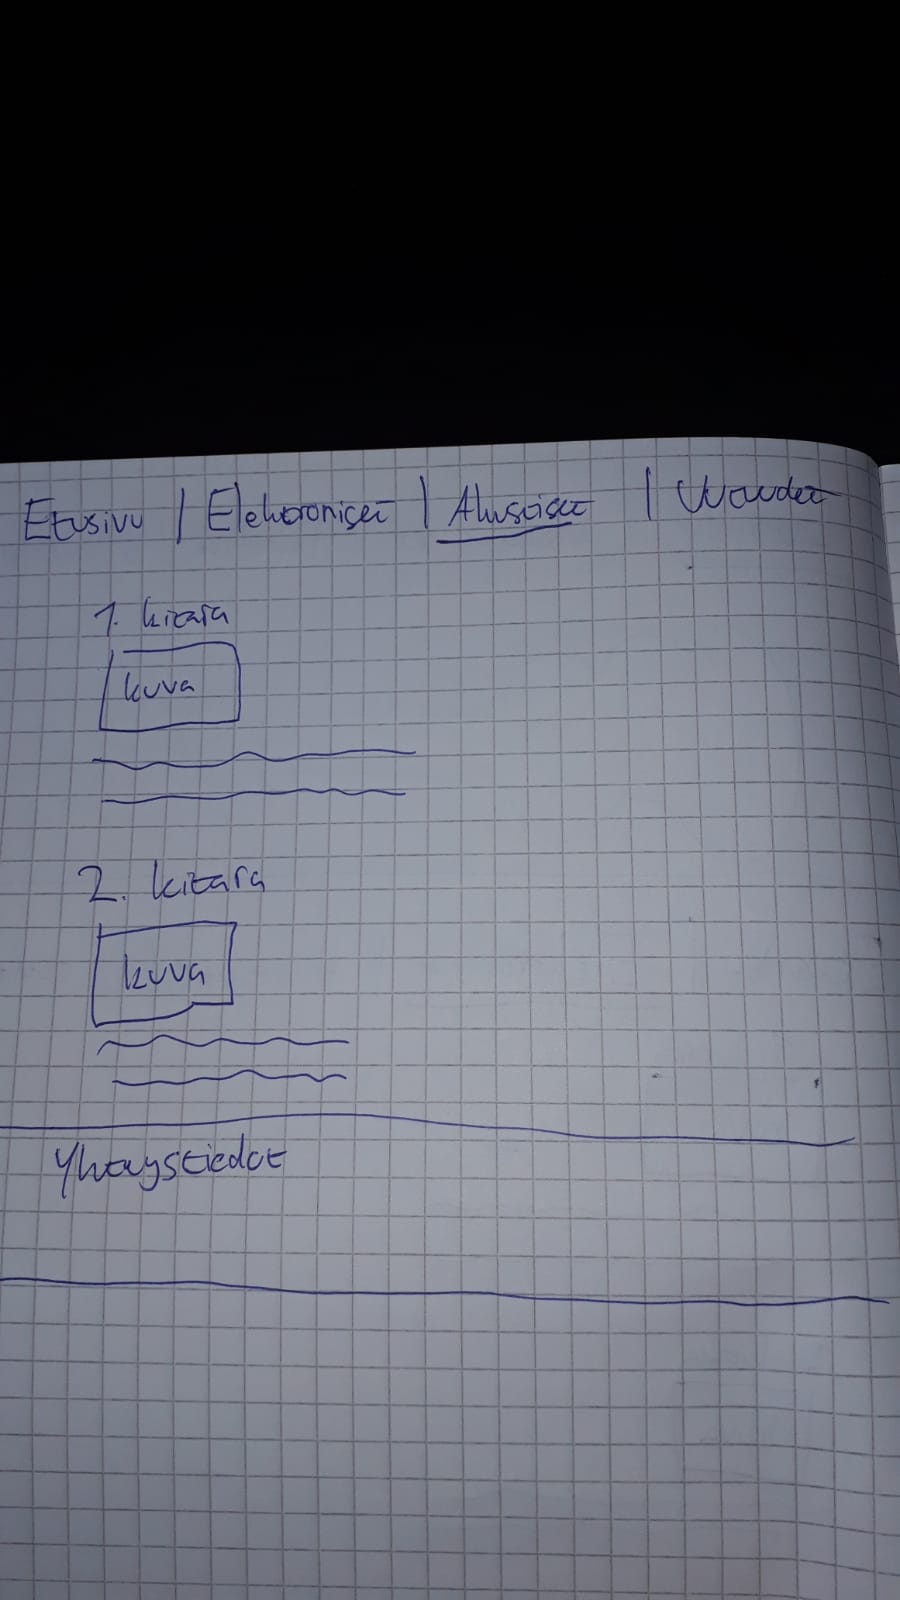 Etusivu | Elektroniset | Akustiset | Vuudet
1. kitara
kuva
2. kitara
kuva
Yhteystiedot